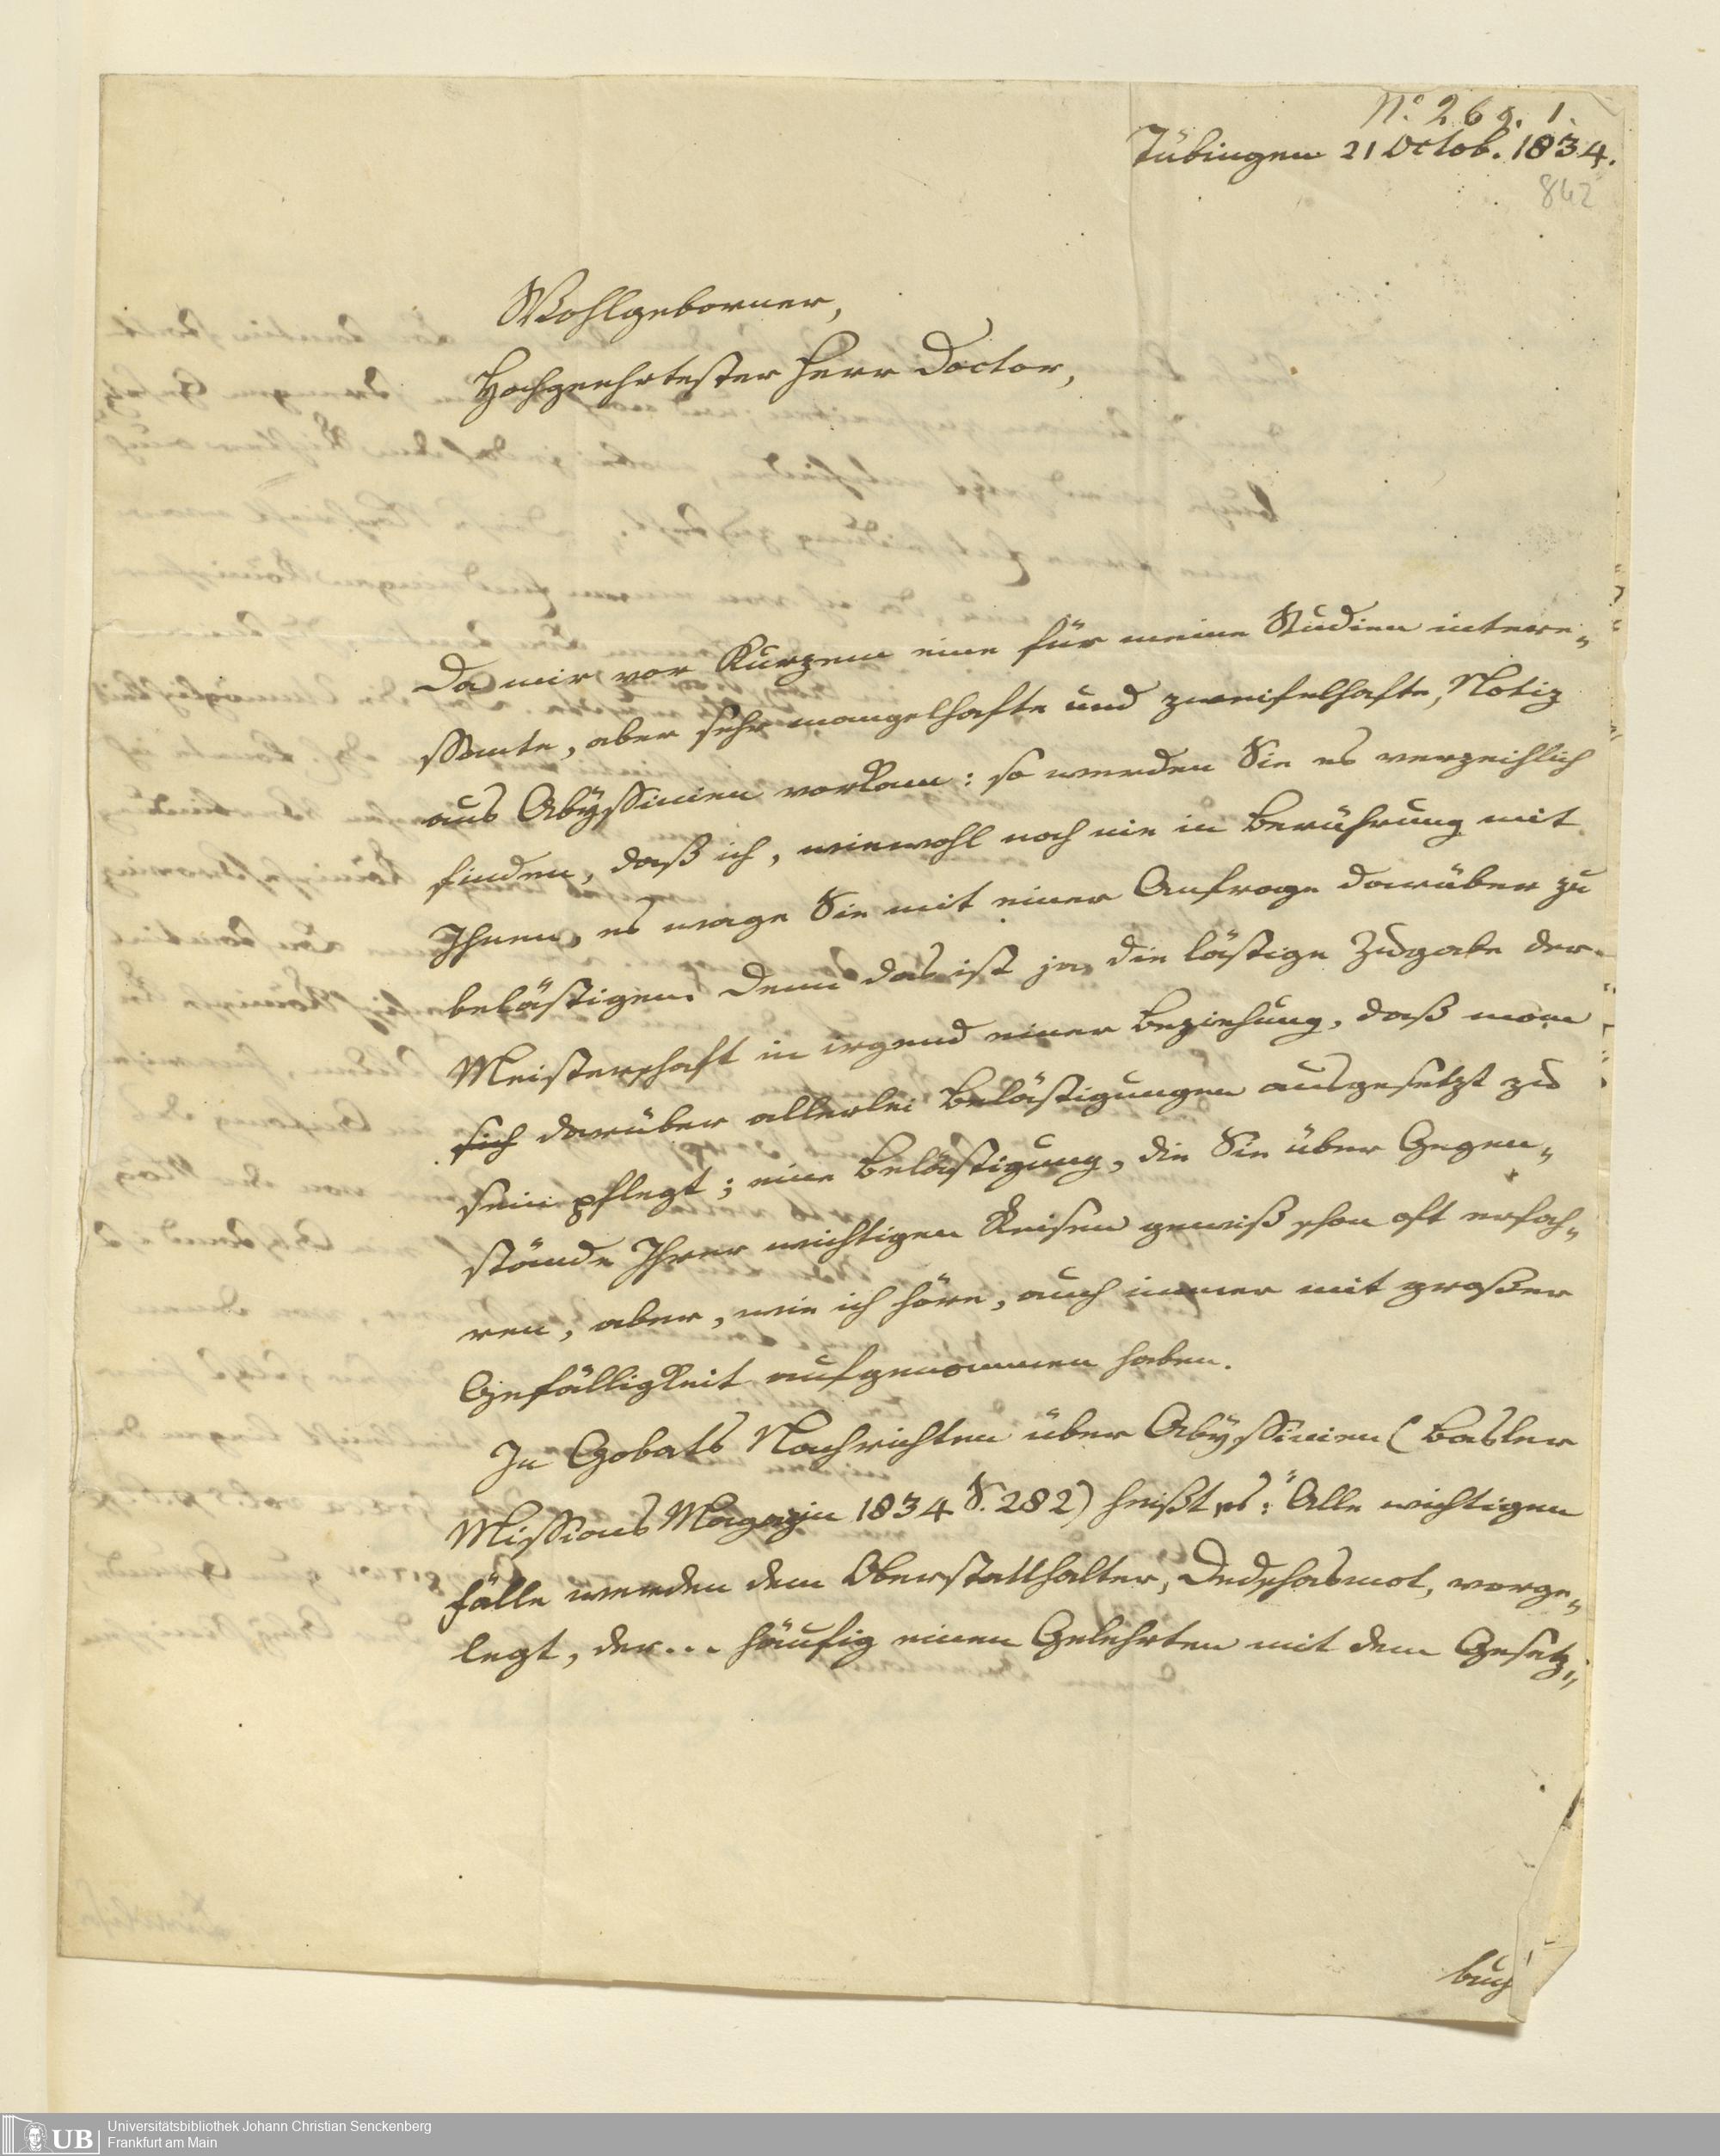 No. 26 g. 1.
Tübingen 21 Octob. 1834.
842
Wohlgeborner,
Hochgeehrtester Herr Doctor,
Da mir vor Kurzem eine für meine Studien intere-
ssante, aber sehr mangelhafte und zweifelhafte, Notiz
aus Abyssinien vorkam: so werden Sie es verzeihlich
finden, daß ich, wiewohl noch nie in Berührung mit
Ihnen, es wage Sie mit einer Anfrage darüber zu
belästigen. Denn das ist ja die lästige Zugabe der
Meisterschaft in irgend einer Beziehung, daß man
sich darüber allerlei Belästigungen ausgesetzt zu
sein pflegt; eine Belästigung, die Sie über Gegen-
stände Ihrer wichtigen Reisen gewiß schon oft erfah-
ren, aber, wie ich höre, auch immer mit großer
Gefälligkeit aufgenommen haben.
In Gobats Nachrichten über Abyssinien (Basler
Missions Magazin 1834 S. 282) heißt es: "Alle wichtigen
Fälle werden dem Oberstatthalter, Dedschasmot, vorge-
legt, der... häufig einen Gelehrten mit dem Gesetz-
buch
UB
Universitätsbibliothek Johann Christian Senckenberg
Frankfurt am Main